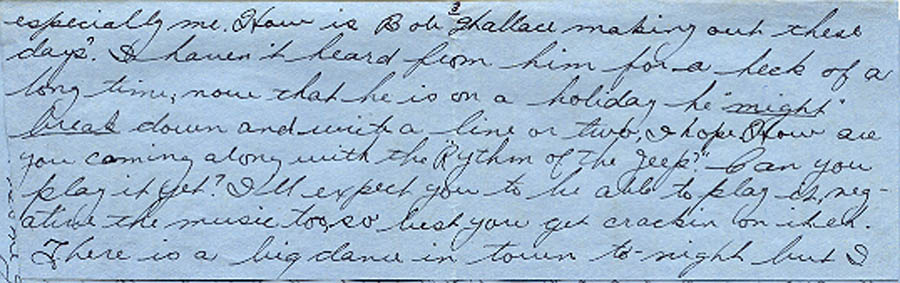 3
especially me. How is Bob Wallace making out these
days? I haven't heard from him for a heck of a
long time; now that he is on a holiday he "might"
break down and write a line or two, I hope. How are
you coming along with the "Rythm of The Jeep?" Can you
play it yet? I'll expect you to be able to play it, neg-
ative the music too, so best you get crackin on it eh.
There is a big dance in town to-night but I